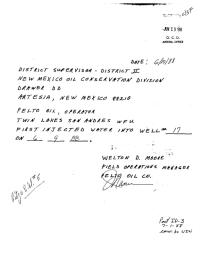 JUN 13 '88
O.C.D.
ARTESIA, OFFICE
DATE: 6/10/88
DISTRICT SUPERVISOR - DISTRICT II
NEW MEXICO OIL CONSERVATION DIVISION
DRAWER DD
ARTESIA, NEW MEXICO 88210
PELTO OIL, OPERATOR
TWIN LAKES SAN ANDRES WFU
FIRST INJECTED WATER INTO WELL # 17
ON 6 9 88.
WELTON D. MOORE
FIELD OPERATIONS MANAGER
PELTO OIL CO.
Post ID-3
7-1-88